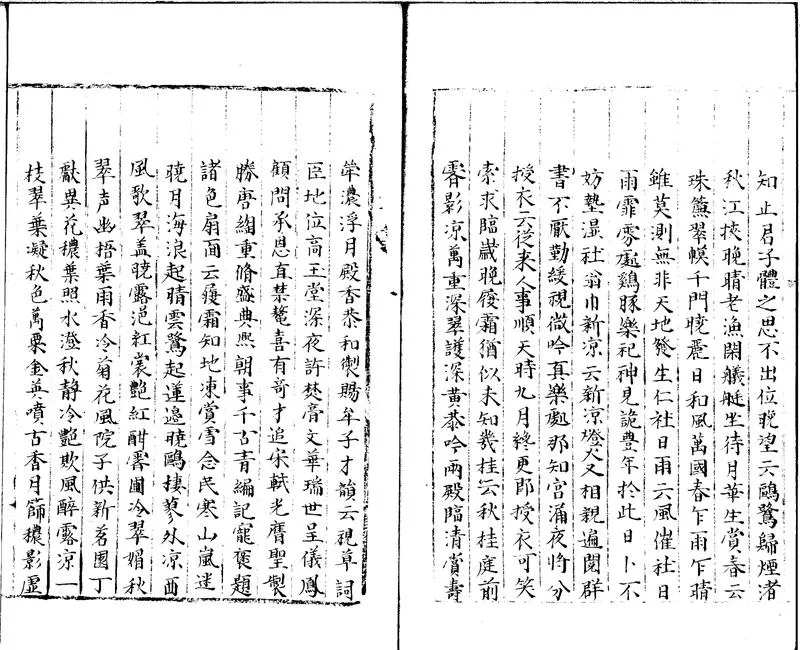 知止君子體之思不出位晚望云鷗鷺歸煙渚
秋江挾晚晴老漁閑艤艇坐待月華生賞春云
珠簾翠幙千門曉麗日和風萬國春乍雨乍晴
雖莫測無非天地發生仁社日雨云風催社日
雨霏雰處處鷄豚樂祀神見詭豐年於此日卜不
妨墊濕社翁巾新凉云新凉燈火又相親遍閱群
書不厭勤緩視微吟真樂處那知宮漏夜將分
授衣云從来人事順天時九月終更即授衣可笑
索求臨歲晚履霜猶似未知幾桂云秋桂庭前
霽影凉萬重深翠護深黄恭吟兩殿臨清賞壽
斚濃浮月殿香恭和御製賜牟子才韻云視草詞
臣地位高玉堂深夜許焚膏文華瑞世呈儀鳳
顧問承恩直禁鼇喜有奇才追宋軾光膺聖製
勝唐綯重脩盛典熙朝事千古青編記寵褒題
諸色扇面云履霜知地凍賞雪念民寒山嵐迷
曉月海浪起晴雲鷺起蓮邉曉鷗棲蓼外凉西
風歌翠盖曉露浥紅裳艷紅酣霽圃冷翠媚秋
翠声幽梧葉雨香冷菊花風院子供新茗園丁
獻異花穠葉照水澄秋静冷艷欺風醉露凉一
枝翠葉凝秋色萬粟金英噴古香月篩穠影虚